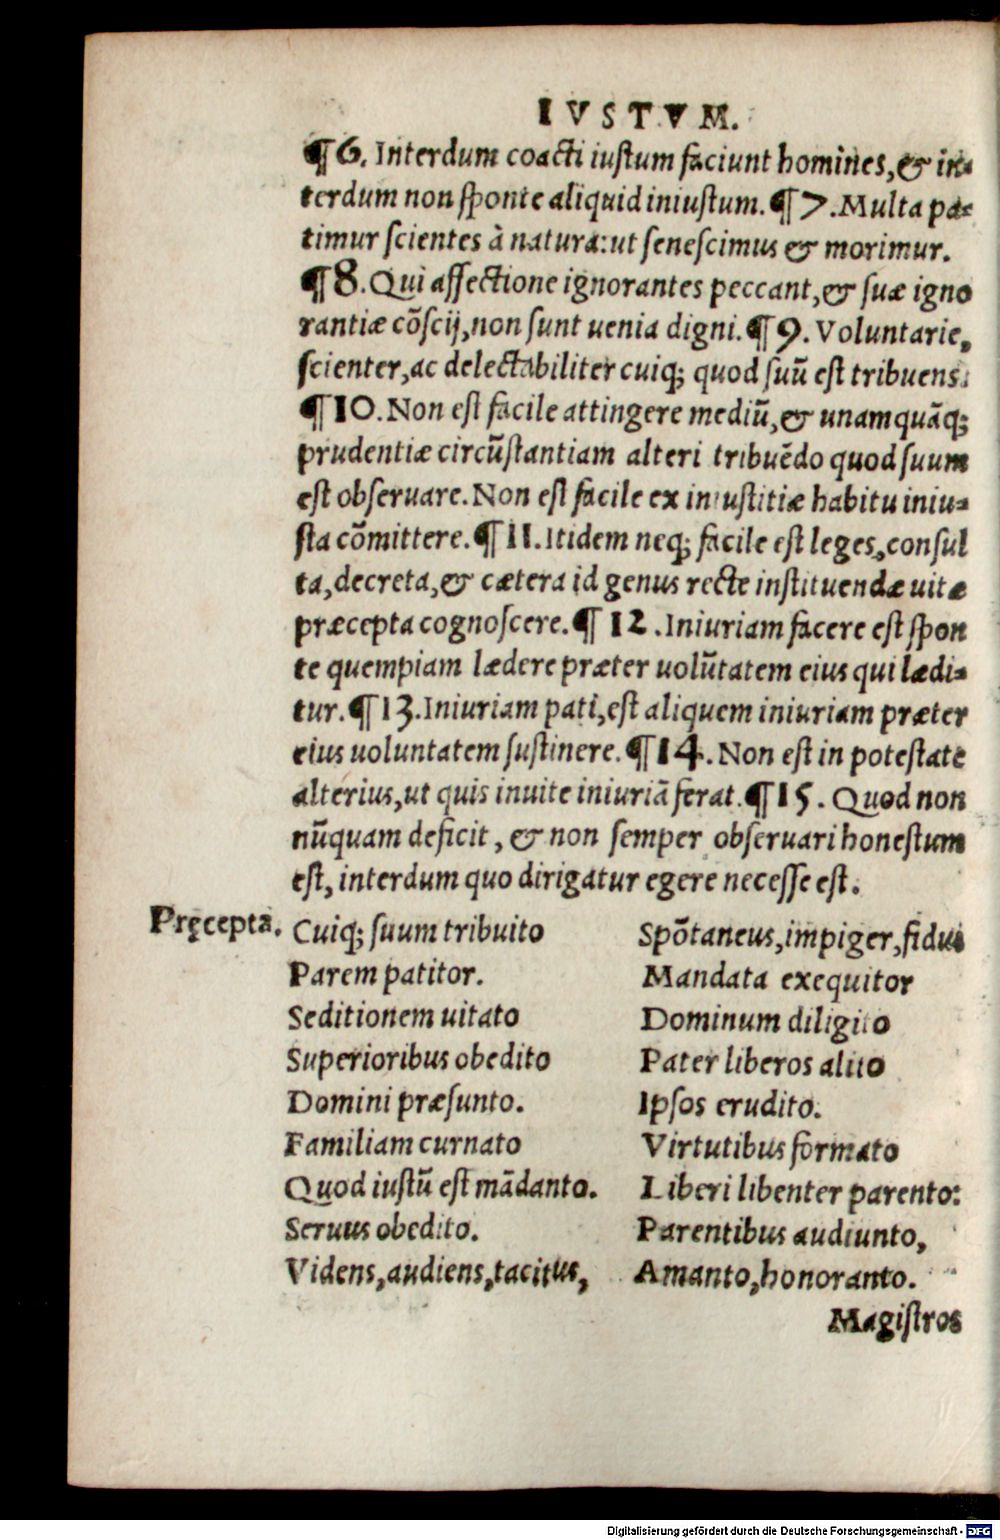 IVSTVM.
¶6. Interdum coacti iustum faciunt homines, & in-
terdum non sponte aliquid iniustum. ¶7. Multa pa-
timur scientes à natura: ut senescimus & morimur.
¶8. Qui affectione ignorantes peccant, & suæ igno
rantiæ cõscij, non sunt uenia digni. ¶9. Voluntarie,
scienter, ac delectabiliter cuiq; quod suũ est tribuens.
¶10. Non est facile attingere mediũ, & unamquãq;
prudentiæ circũstantiam alteri tribuẽdo quod suum
est obseruare. Non est facile ex iniustitiæ habitu iniu-
sta cõmittere. ¶11. Itidem neq; facile est leges, consul
ta, decreta, & cætera id genus recte instituendæ uitæ
præcepta cognoscere. ¶12. Iniuriam facere est spon
te quempiam lædere præter uolũtatem eius qui lædi-
tur. ¶13. Iniuriam pati, est aliquem iniuriam præter
eius uoluntatem sustinere. ¶14. Non est in potestate
alterius, ut quis inuite iniuriã ferat. ¶15. Quod non
nũquam deficit, & non semper obseruari honestum
est, interdum quo dirigatur egere necesse est.
Pręcepta.
Cuiq; suum tribuito
Parem patitor.
Seditionem uitato
Superioribus obedito
Domini præsunto.
Familiam curnato
Quod iustũ est mãdanto.
Seruus obedito.
Videns, audiens, tacitus,
Spõtaneus, impiger, fidus
Mandata exequitor
Dominum diligito
Pater liberos alito
Ipsos erudito.
Virtutibus formato
Liberi libenter parento:
Parentibus audiunto,
Amanto, honoranto.
Magistros
Digitalisierung gefördert durch die Deutsche Forschungsgemeinschaft - DFG